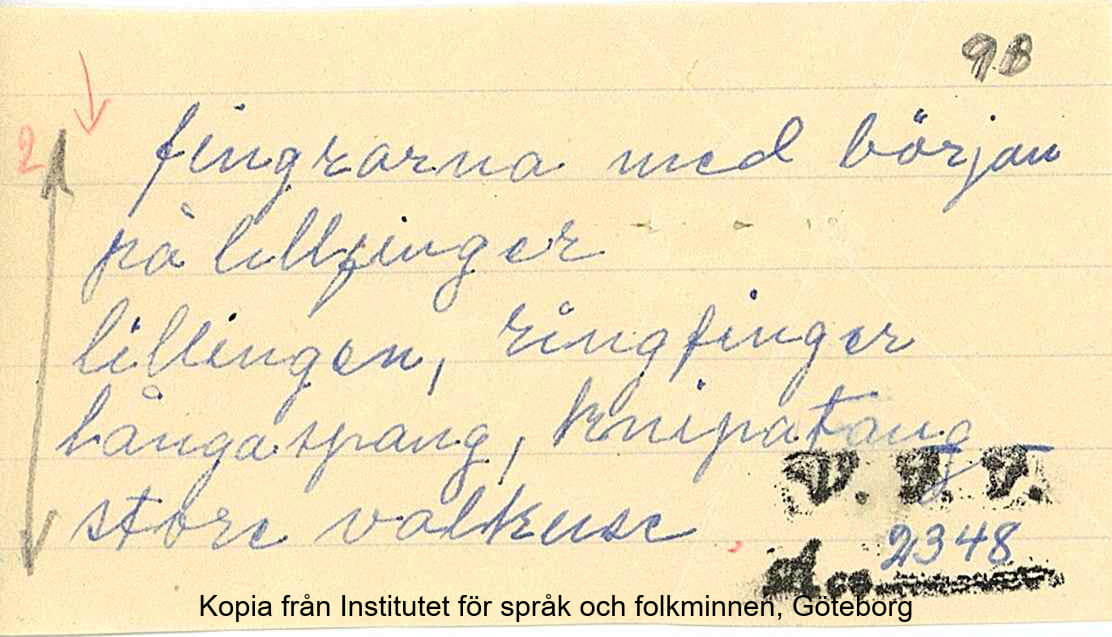 98
2 fingrarna med början
på lillfinger
lillingen, ringfinger
långaspang, knipatang
store valkusc
V. F. V.
Acc. 2348
Kopia från Institutet för språk och folkminnen, Göteborg